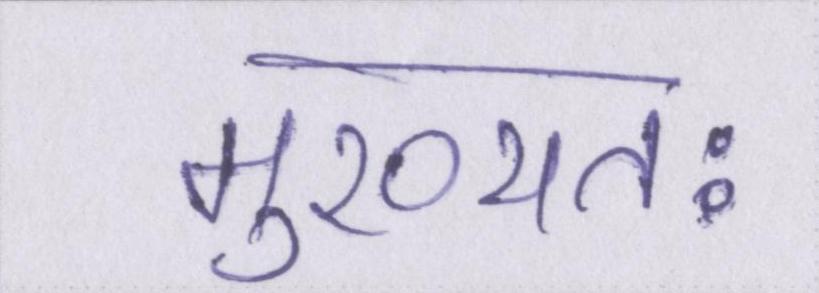 मुख्यतः